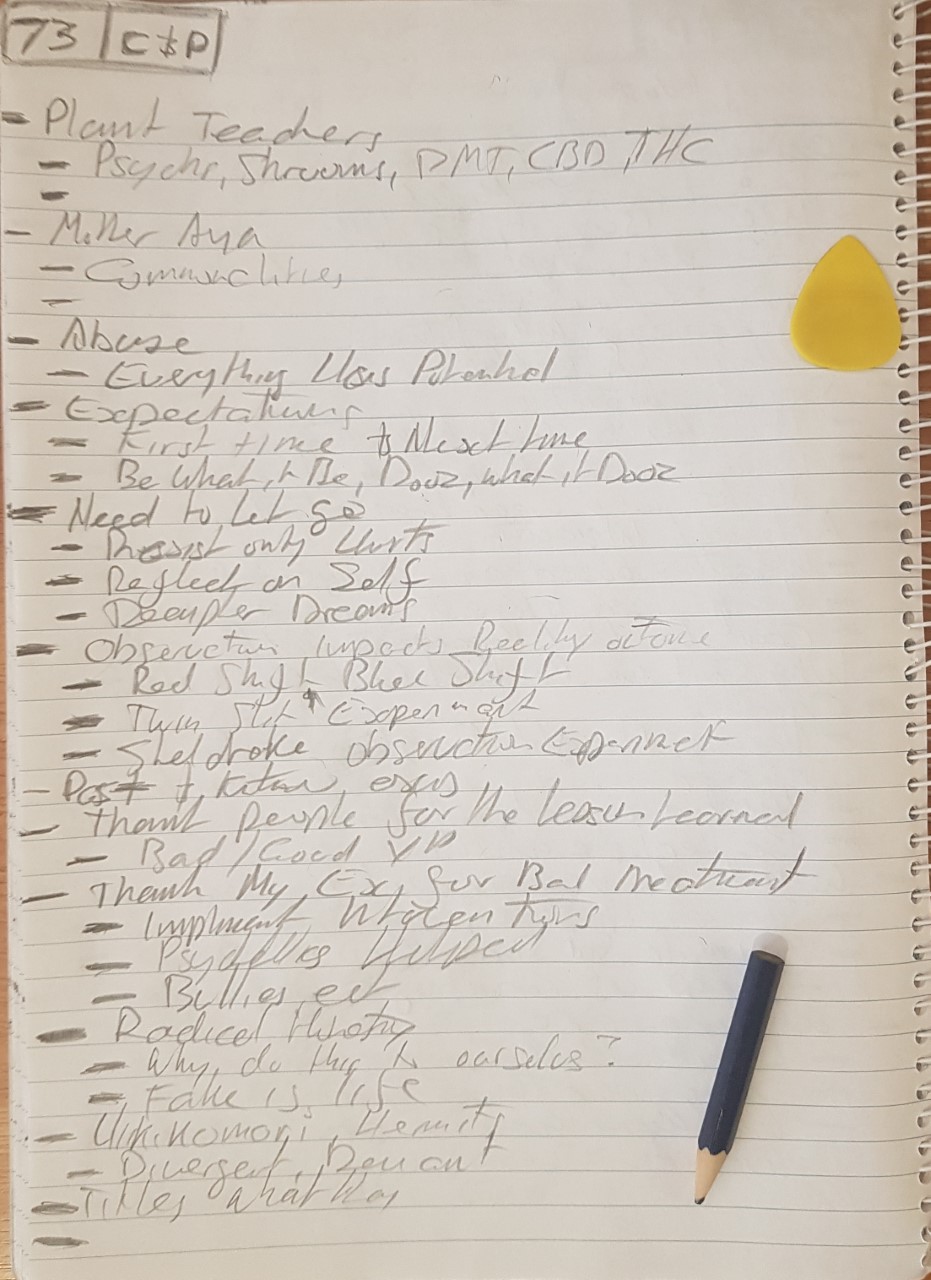 73 C&P
- Plant Teachers
- Psychs, Shrooms, DMT, CBD, THC
-
- Mother Aya
- Communities
-
- Abuse
- Everything Has Potential
- Expectations
- First time to Next time
- Be What it Be, Dooz, what it Dooz
- Need to Let go
- Resist only Hurts
- Reflect on Self
- Deeper Dreams
- Observation Impacts Reality
- Red Shift Blue Shift
- Twin Slit Experiment
- Sheldrake observation Experiment
- Past
- Thank people for the lesson learned
- Bad/Good
- Thank My Ex, for Bad treatment
- Implement
- Psydellics Helped
- Bullies, ect
- Radical Honesty
- Why, do this to ourselves?
- Fake is life
- Hikikomori, Hermits
- Divergent, Deviant
- Titles, what
-